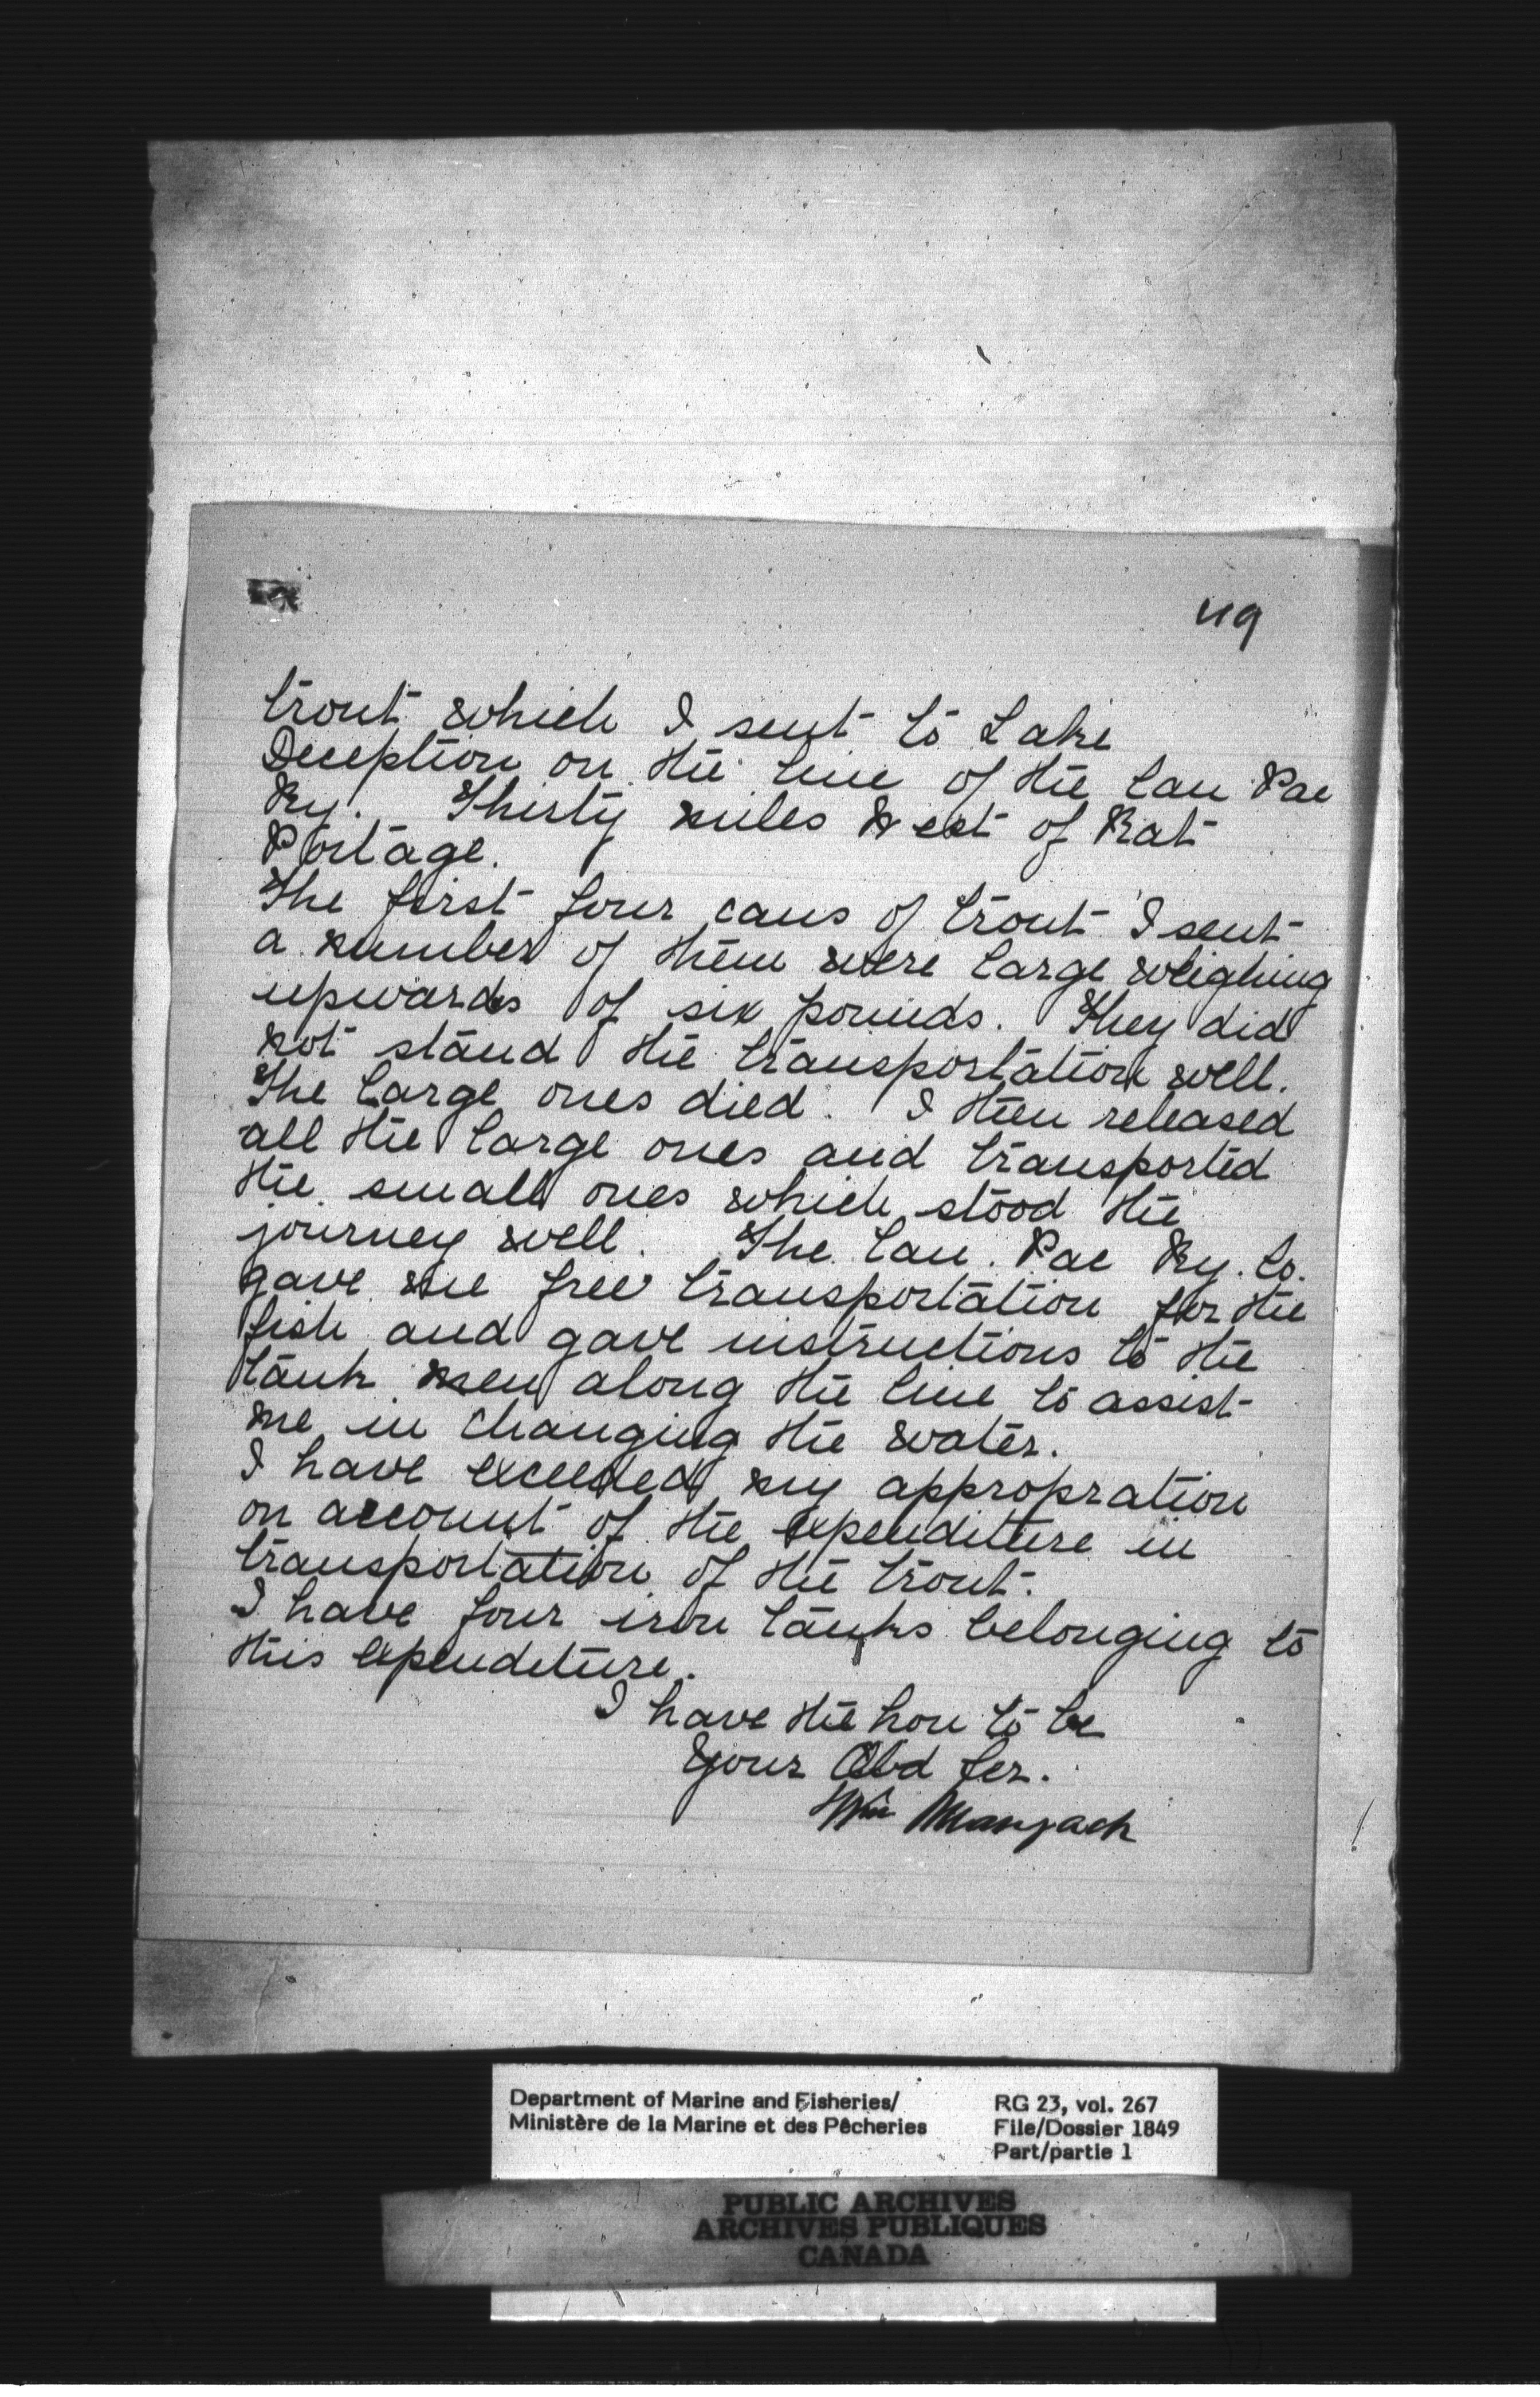 49
trout which I sent to Lake
Deception on the line of the Can Pac
Ry. Thirty miles West of Rat
Portage.
The first four cans of trout I sent
a number of them were large weighing
upwards of six pounds. They did
not stand the transportation well.
The large ones died. I then released
all the large ones and transported
the small ones which stood the
journey well. The Can. Pac Ry. Co.
gave me free transportation for the
fish and gave instructions to the
tank men along the line to assist
me in changing the water.
I have exceeded my appropration
on account of the expenditure in
transportation of the trout.
I have four iron tanks belonging to
this expenditure.
I have the hon to be
Your Obd Ser.
Wm
Department of Marine and Fisheries/
Ministère de la Marine et des Pêcheries
RG 23, vol. 267
File/Dossier 1849
Part/partie 1
PUBLIC ARCHIVES
ARCHIVES PUBLIQUES
CANADA